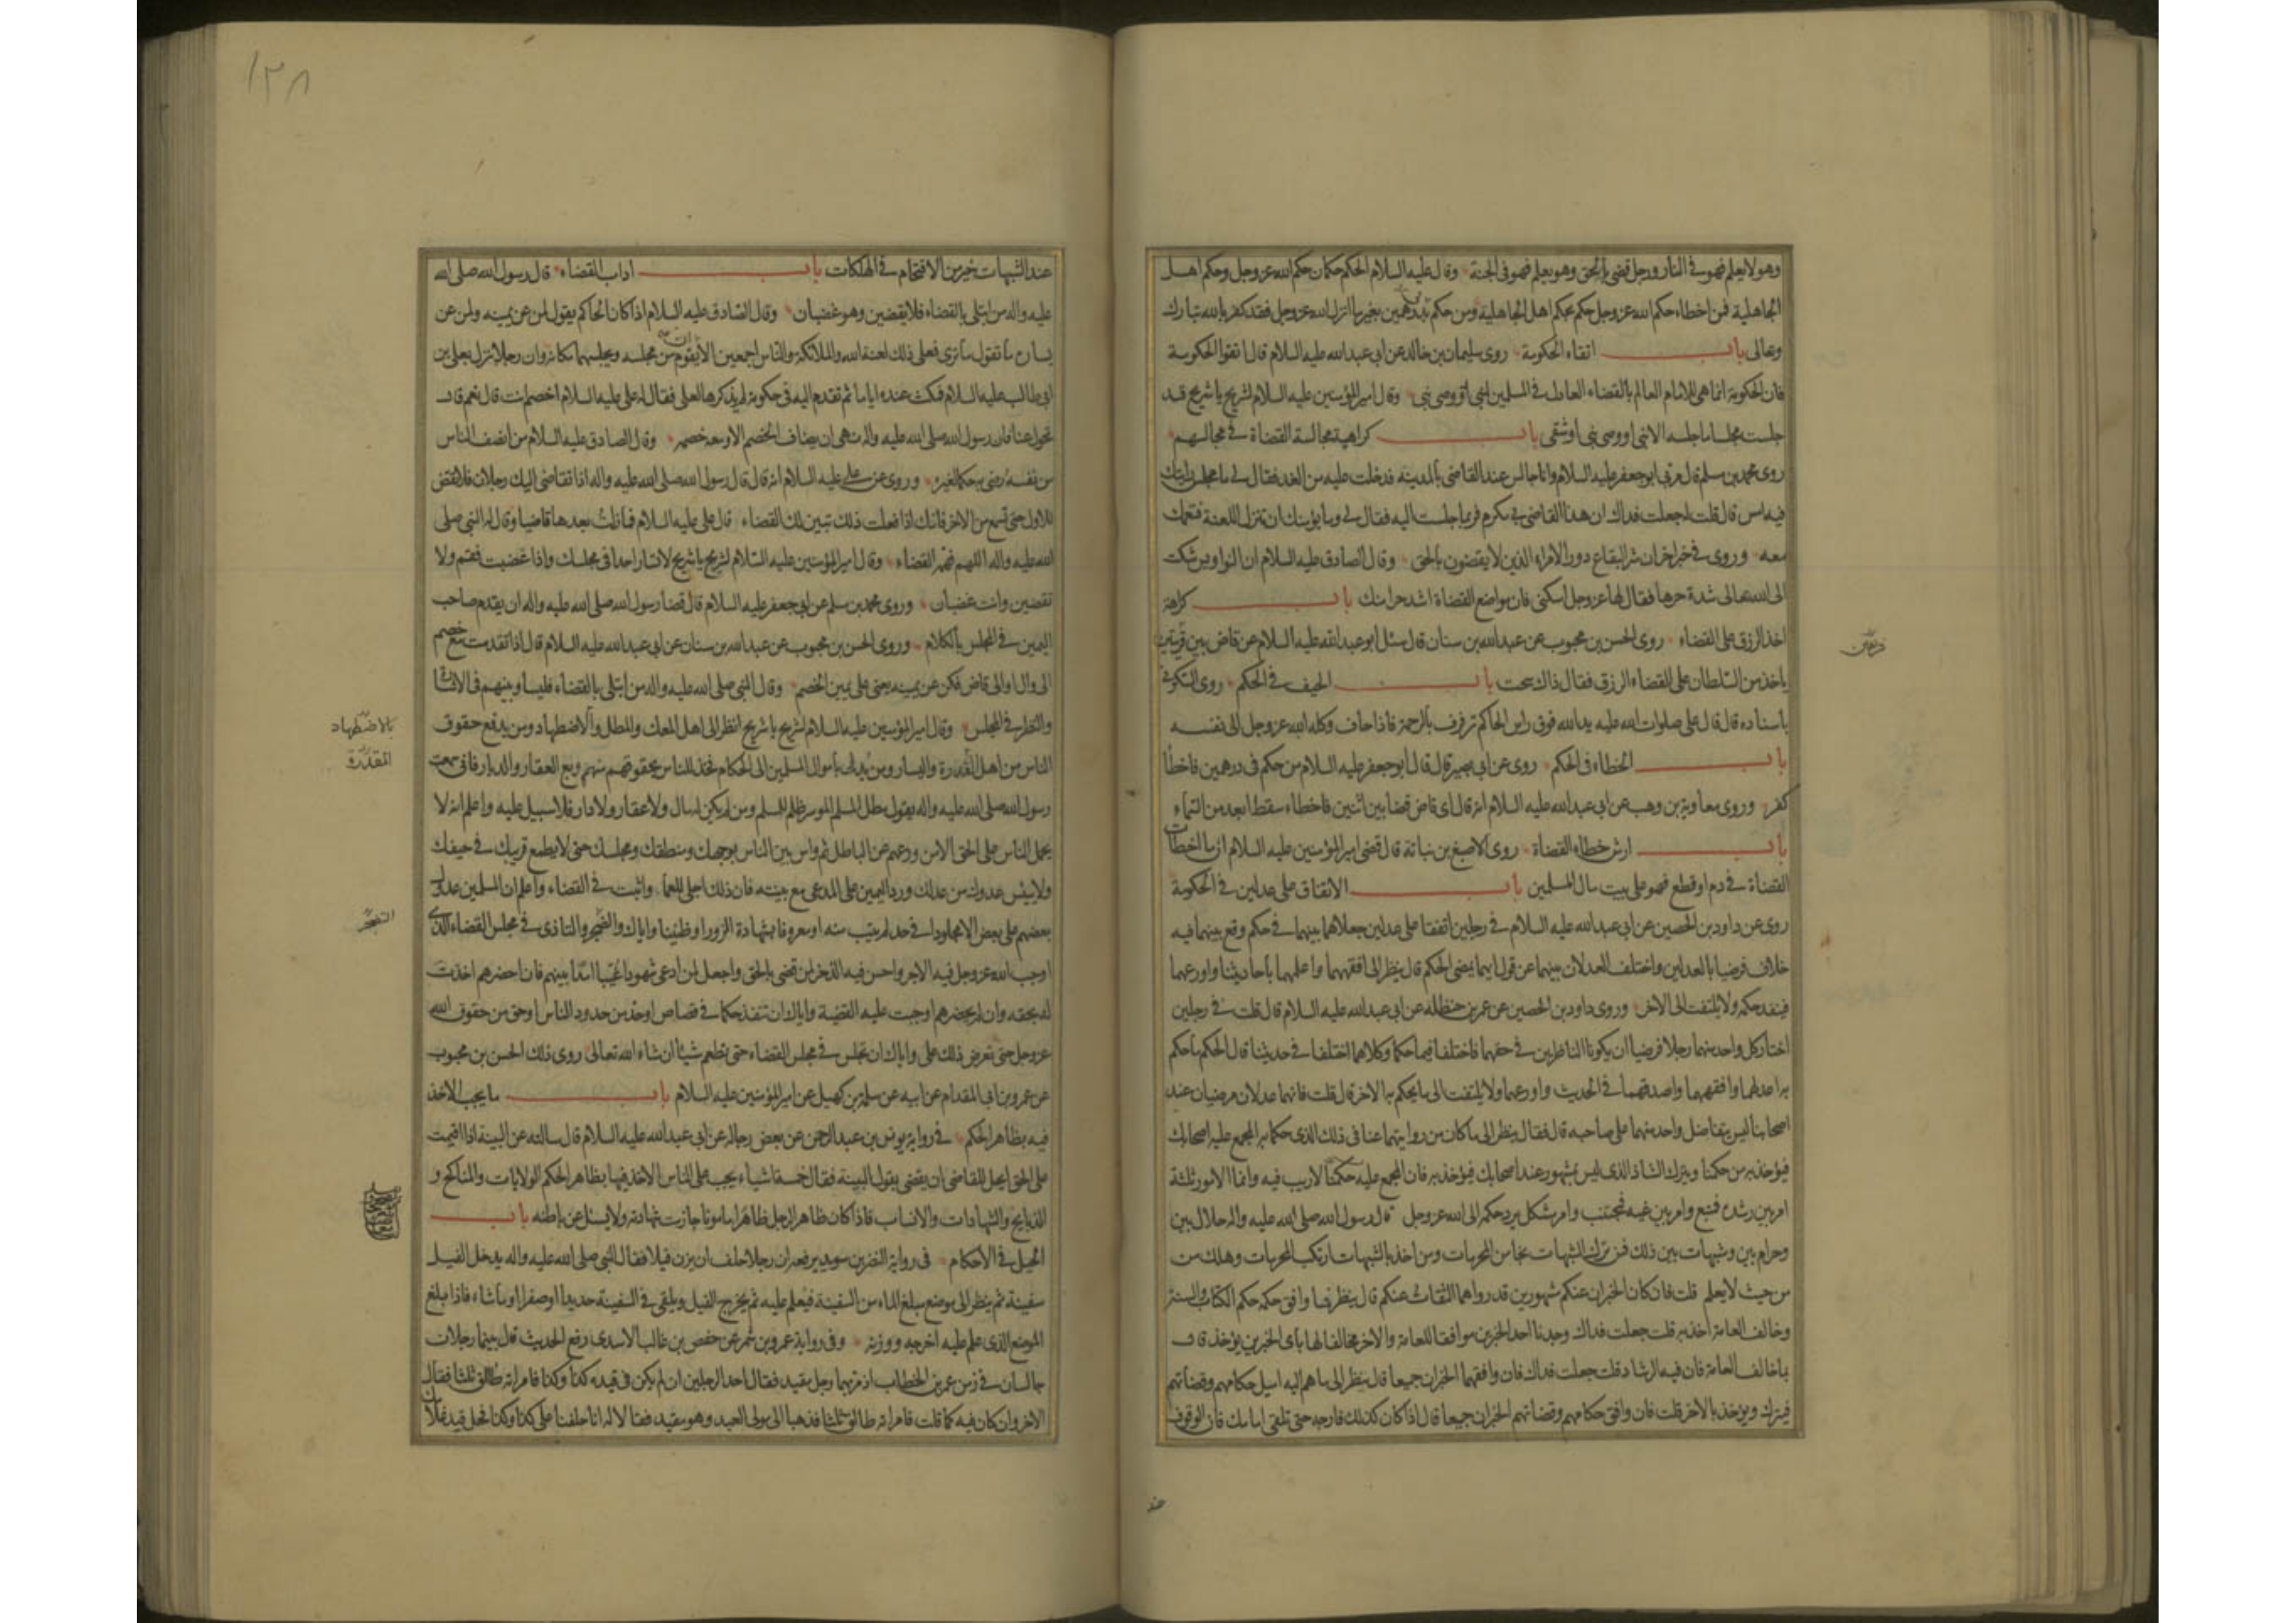 وهو لا يعلم فهو في النار ورجل قضى بالحق وهو يعلم فهو في الجنة وقال عليه السلام الحكم حكمان حكم الله عز وجل وحكم اهل
الجاهلية فمن اخطاء حكم الله عز وجل حكم بحكم اهل الجاهلية ومن حكم بدرهمين بغير ما انزل الله عز وجل فقد كفر بالله تبارك
وتعالى باب اتقاء الحكومة روى سليمان بن خالد عن ابي عبد الله عليه السلام قال اتقوا الحكومة
فان الحكومة انما هي للامام العالم بالقضاء العادل في المسلمين لنبي او وصي نبي وقال امير المؤمنين عليه السلام لشريح يا شريح قد
جلست مجلسا ما جلسه الا نبي او وصي نبي او شقي باب كراهية مجالسة القضاة في مجالسهم
روى محمد بن مسلم قال مر بي ابو جعفر عليه السلام وانا جالس عند القاضي بالمدينة فدخلت عليه من الغد فقال لي ما مجلس رايتك
فيه امس قال قلت له جعلت فداك ان هذا القاضي لي مكرم فربما جلست اليه فقال لي وما يؤمنك ان تنزل اللعنة فتعمك
معه وروى في خبر اخر ان شر البقاع دور الامراء الذين لا يقضون بالحق وقال الصادق عليه السلام ان النواويس شكت
الى الله تعالى شدة حرها فقال لها عز وجل اسكني فان مواضع القضاة اشد حرا منك باب كراهة
اخذ الرزق على القضاء روى الحسن بن محبوب عن عبد الله بن سنان قال سئل ابو عبد الله عليه السلام عن قاض بين قريتين
ياخذ من السلطان على القضاء الرزق فقال ذاك سحت باب الحيف في الحكم روى السكوني
باسناده قال قال علي صلوات الله عليه يد الله فوق راس الحاكم ترفرف بالرحمة فاذا حاف وكله الله عز وجل الى نفسه
باب الخطاء في الحكم روى عن ابي بصير قال قال ابو جعفر عليه السلام من حكم في درهمين فاخطأ
كفر وروى معاوية بن وهب عن ابي عبد الله عليه السلام انه قال اي قاض قضا بين اثنين فاخطاء سقط ابعد من السماء
باب ارش خطاء القضاة روى الاصبغ بن نباتة قال قضى امير المؤمنين عليه السلام ان ما اخطأت
القضاة في دم او قطع فهو على بيت مال المسلمين باب الاتفاق على عدلين في الحكومة
روى عن داود بن الحصين عن ابي عبد الله عليه السلام في رجلين اتفقا على عدلين جعلاهما بينهما في حكم وقع بينهما فيه
خلاف فرضيا بالعدلين واختلف العدلان بينهما عن قول ايهما يمضي الحكم قال ينظر الى افقههما واعلمهما باحاديثنا واورعهما
فينفذ حكمه ولا يلتفت الى الاخر وروى داود بن الحصين عن عمر بن حنظلة عن ابي عبد الله عليه السلام قال قلت في رجلين
اختار كل واحد منهما رجلا فرضيا ان يكونا الناظرين في حقهما فاختلفا فيما حكما وكلاهما اختلفا في حديثنا قال الحكم ما حكم
به اعدلهما وافقههما واصدقهما في الحديث واورعهما ولا يلتفت الى ما يحكم به الاخر قال قلت فانهما عدلان مرضيان عند
اصحابنا ليس يتفاضل واحد منهما على صاحبه قال فقال ينظر الى ما كان من روايتهما عنا في ذلك الذي حكما به المجمع عليه اصحابك
فيؤخذ به من حكمنا ويترك الشاذ الذي ليس بمشهور عند اصحابك فيؤخذ به فان المجمع عليه حكمنا لا ريب فيه وانما الامور ثلثة
امر بين رشده فتبع وامر بين غيه فمجتنب وامر مشكل يرد حكمه الى الله عز وجل قال رسول الله صلى الله عليه واله حلال بين
وحرام بين وشبهات بين ذلك فمن ترك الشبهات نجا من المحرمات ومن اخذ بالشبهات ارتكب المحرمات وهلك من
من حيث لا يعلم قلت فان كان الخبران عنكم مشهورين قد رواهما الثقات عنكم قال ينظر فما وافق حكمه حكم الكتاب والسنة
وخالف العامة اخذ به قلت جعلت فداك وجدنا احد الخبرين موافقا للعامة والاخر مخالفا لها باي الخبرين يؤخذ قال
بما خالف العامة فان فيه الرشاد قلت جعلت فداك فان وافقهما الخبران جميعا قال ينظر الى ما هم اليه اميل حكامهم وقضاتهم
فيترك ويؤخذ بالاخر قلت فان وافق حكامهم وقضاتهم الخبران جميعا قال اذا كان كذلك فارجه حتى تلقى امامك فان الوقوف
عند
١٣٨
عند الشبهات خير من الاقتحام في الهلكات باب اداب القضاء قال رسول الله صلى الله
عليه واله من ابتلي بالقضاء فلا يقضين وهو غضبان وقال الصادق عليه السلام اذا كان الحاكم يقول لمن عن يمينه ولمن عن
يساره ما تقول ما ترى فعلى ذلك لعنة الله والملائكة والناس اجمعين الا ان يقوم من مجلسه ويجلسهما مكانه وان رجلا نزل بعلي بن
ابي طالب عليه السلام فمكث عنده اياما ثم تقدم اليه في حكومة لم يذكرها لعلي فقال له علي عليه السلام اخصم انت قال نعم قال
تحول عنا فان رسول الله صلى الله عليه واله نهى ان يضاف الخصم الا ومعه خصمه وقال الصادق عليه السلام من انصف الناس
من نفسه رضي به حكما لغيره وروى عن علي عليه السلام انه قال قال رسول الله صلى الله عليه واله اذا تقاضى اليك رجلان فلا تقض
للاول حتى تسمع من الاخر فانك اذا فعلت ذلك تبين لك القضاء قال علي عليه السلام فما زلت بعدها قاضيا وقال له النبي صلى
الله عليه واله اللهم فهمه القضاء وقال امير المؤمنين عليه السلام لشريح يا شريح لا تسار احدا في مجلسك واذا غضبت فقم ولا
تقضين وانت غضبان وروى محمد بن مسلم عن ابي جعفر عليه السلام قال قضا رسول الله صلى الله عليه واله ان يقدم صاحب
اليمين في المجلس بالكلام وروى الحسن بن محبوب عن عبد الله بن سنان عن ابي عبد الله عليه السلام قال اذا تقدمت مع خصم
الى وال او الى قاض فكن عن يمينه يعني على يمين الخصم وقال النبي صلى الله عليه واله من ابتلي بالقضاء فليساو بينهم في الاشارة
والنظر في المجلس وقال امير المؤمنين عليه السلام لشريح يا شريح انظر الى اهل المعك والمطل والاضطهاد ومن يدفع حقوق
بالاضطهاد
الناس من اهل المقدرة واليسار ومن يدلي باموال المسلمين الى الحكام فخذ للناس بحقوقهم منهم وبع العقار والديار فاني سمعت
المقدرة
رسول الله صلى الله عليه واله يقول مطل المسلم الموسر ظلم للمسلم ومن لم يكن له مال ولا عقار ولا دار فلا سبيل عليه واعلم انه لا
يحمل الناس على الحق الا من ورعهم عن الباطل ثم واس بين الناس بوجهك ومنطقك ومجلسك حتى لا يطمع قريبك في حيفك
ولا ييئس عدوك من عدلك ورد اليمين على المدعي مع بينته فان ذلك اجلى للعما واثبت في القضاء واعلم ان المسلمين عدول
بعضهم على بعض الا مجلودا في حد لم يتب منه او معروفا بشهادة الزور او ظنينا واياك والضجر والتاذي في مجلس القضاء الذي
اوجب الله عز وجل فيه الاجر واحسن فيه الذخر لمن قضى بالحق واجعل لمن ادعى شهودا غيبا امدا بينهم فان احضرهم اخذت
له بحقه وان لم يحضرهم اوجبت عليه القضية واياك ان تنفذ حكما في قصاص او حد من حدود الناس او حق من حقوق الله
عز وجل حتى تعرض ذلك علي واياك ان تجلس في مجلس القضاء حتى تطعم شيئا ان شاء الله تعالى روى ذلك الحسن بن محبوب
عن عمرو بن ابي المقدام عن ابيه عن سلمة بن كهيل عن امير المؤمنين عليه السلام باب ما يجب الاخذ
فيه بظاهر الحكم في رواية يونس بن عبد الرحمن عن بعض رجاله عن ابي عبد الله عليه السلام قال سالته عن البينة اذا اقيمت
على الحق ايحل للقاضي ان يقضي بقول البينة فقال خمسة اشياء يجب على الناس الاخذ فيها بظاهر الحكم الولايات والمناكح و
الذبايح والشهادات والانساب فاذا كان ظاهر الرجل ظاهرا مامونا جازت شهادته ولا يسئل عن باطنه باب
الحيل في الاحكام في رواية النضر بن سويد يرفعه ان رجلا حلف ان يزن فيلا فقال النبي صلى الله عليه واله يدخل الفيل
سفينة ثم ينظر الى موضع مبلغ الماء من السفينة فيعلم عليه ثم يخرج الفيل ويلقى في السفينة حديدا او صفرا او ما شاء فاذا بلغ
الموضع الذي علم عليه اخرجه ووزنه وفي رواية عمرو بن شمر عن حفص بن غالب الاسدي رفع الحديث قال بينما رجلان
جالسان في زمن عمر بن الخطاب اذ مر بهما رجل مقيد فقال احد الرجلين ان لم يكن في قيده كذا وكذا فامراته طالق ثلثا فقال
الاخر وان كان فيه كما قلت فامراته طالق ثلثا فذهبا الى مولى العبد وهو مقيد فقالا له انا حلفنا على كذا وكذا فحل قيد غلامك